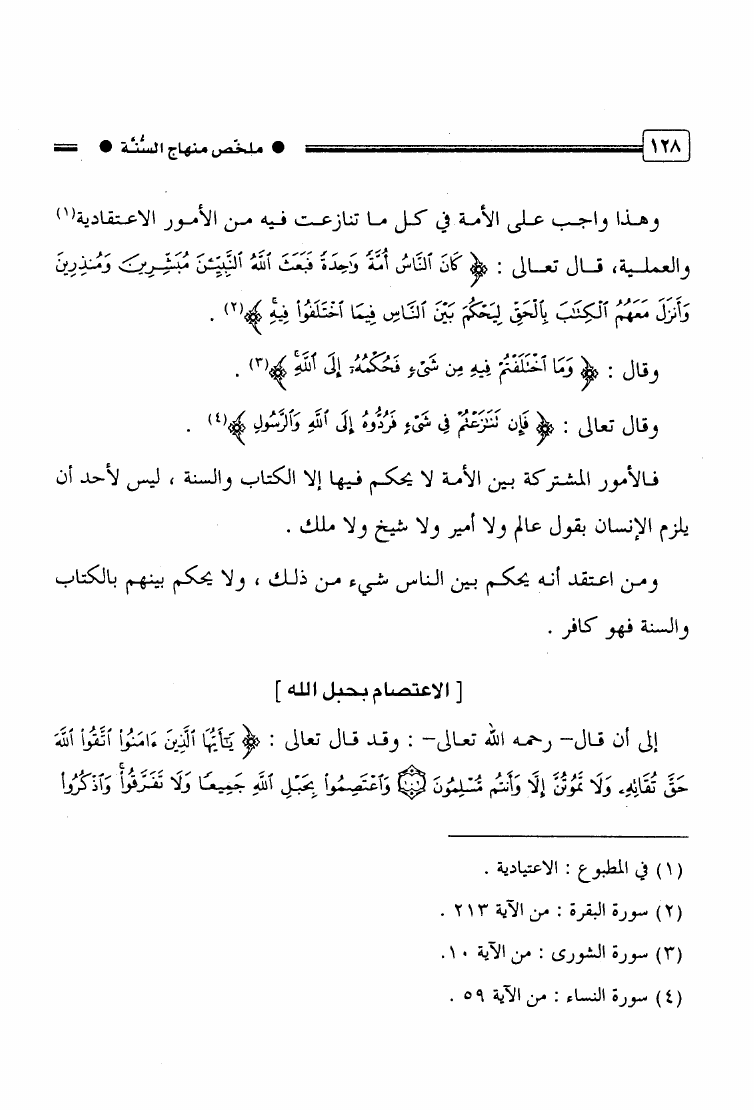 ١٢٨ ● ملخّص منهاج السُّنَّة ●
وهذا واجب على الأمة في كل ما تنازعت فيه من الأمور الاعتقادية(١)
والعملية، قال تعالى : ﴿ كَانَ ٱلنَّاسُ أُمَّةً وَٰحِدَةً فَبَعَثَ ٱللَّهُ ٱلنَّبِيِّـۧنَ مُبَشِّرِينَ وَمُنذِرِينَ
وَأَنزَلَ مَعَهُمُ ٱلْكِتَٰبَ بِٱلْحَقِّ لِيَحْكُمَ بَيْنَ ٱلنَّاسِ فِيمَا ٱخْتَلَفُوا۟ فِيهِ ﴾(٢) .
وقال : ﴿ وَمَا ٱخْتَلَفْتُمْ فِيهِ مِن شَىْءٍ فَحُكْمُهُۥٓ إِلَى ٱللَّهِ ﴾(٣) .
وقال تعالى : ﴿ فَإِن تَنَٰزَعْتُمْ فِى شَىْءٍ فَرُدُّوهُ إِلَى ٱللَّهِ وَٱلرَّسُولِ ﴾(٤) .
فالأمور المشتركة بين الأمة لا يحكم فيها إلا الكتاب والسنة ، ليس لأحد أن
يلزم الإنسان بقول عالم ولا أمير ولا شيخ ولا ملك .
ومن اعتقد أنه يحكم بين الناس شيء من ذلك ، ولا يحكم بينهم بالكتاب
والسنة فهو كافر .
[ الاعتصام بحبل الله ]
إلى أن قال– رحمه الله تعالى– : وقد قال تعالى : ﴿ يَٰٓأَيُّهَا ٱلَّذِينَ ءَامَنُوا۟ ٱتَّقُوا۟ ٱللَّهَ
حَقَّ تُقَاتِهِۦ وَلَا تَمُوتُنَّ إِلَّا وَأَنتُم مُّسْلِمُونَ ١٠٢ وَٱعْتَصِمُوا۟ بِحَبْلِ ٱللَّهِ جَمِيعًا وَلَا تَفَرَّقُوا۟ وَٱذْكُرُوا۟
(١) في المطبوع : الاعتيادية .
(٢) سورة البقرة : من الآية ٢١٣ .
(٣) سورة الشورى : من الآية ١٠.
(٤) سورة النساء : من الآية ٥٩ .